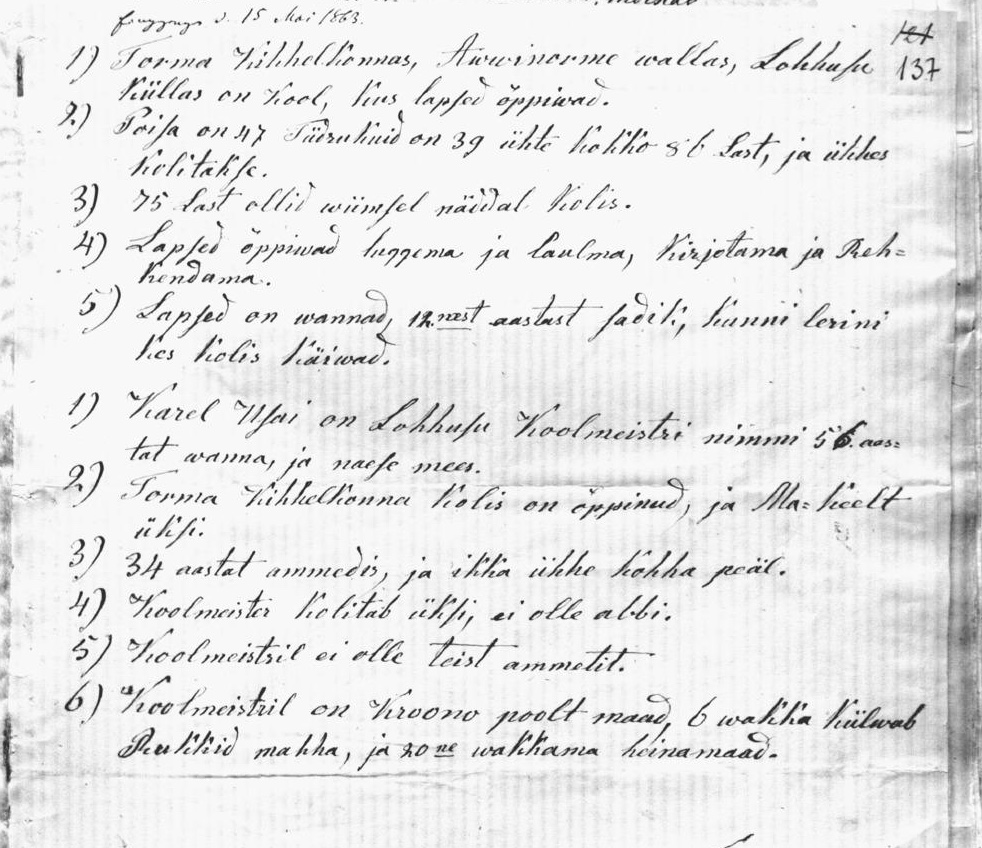 d. 15 Mai 1863.
137
1) Torma Kihhelkonnas, Awwinorme wallas, Lohhusu
Küllas on Kool, kus lapsed öppiwad.
2.) Poisa on 47 Tüdrukuid on 39 ühte kokko 86 Last, ja ükhes
kolitakse.
3) 75 Last ollid wiimsel näddal Kolis.
4) Lapsed öppiwad luggema ja laulma, Kirjotama ja Reh=
kendama.
5) Lapsed on wannad, 12.nest aastast sadik, kunni lerini
kes Kolis käiwad.
1) Karel Usai on Lohhusu Koolmeistri nimmi 56. aas=
tat wanna, ja naese mees.
2) Torma Kihhelkonna Kolis on öppinud, ja Ma=keelt
üksi.
3) 34 aastat ammedis, ja ikka ühhe kohha peäl.
4) Koolmeister kolitab üksi, ei olle abbi.
5) Koolmeistril ei olle teist ammetit.
6) Koolmeistril on Kroono poolt maad, 6 wakka külwab
Rukkid mahha, ja 30ne wakkama heinamaad.